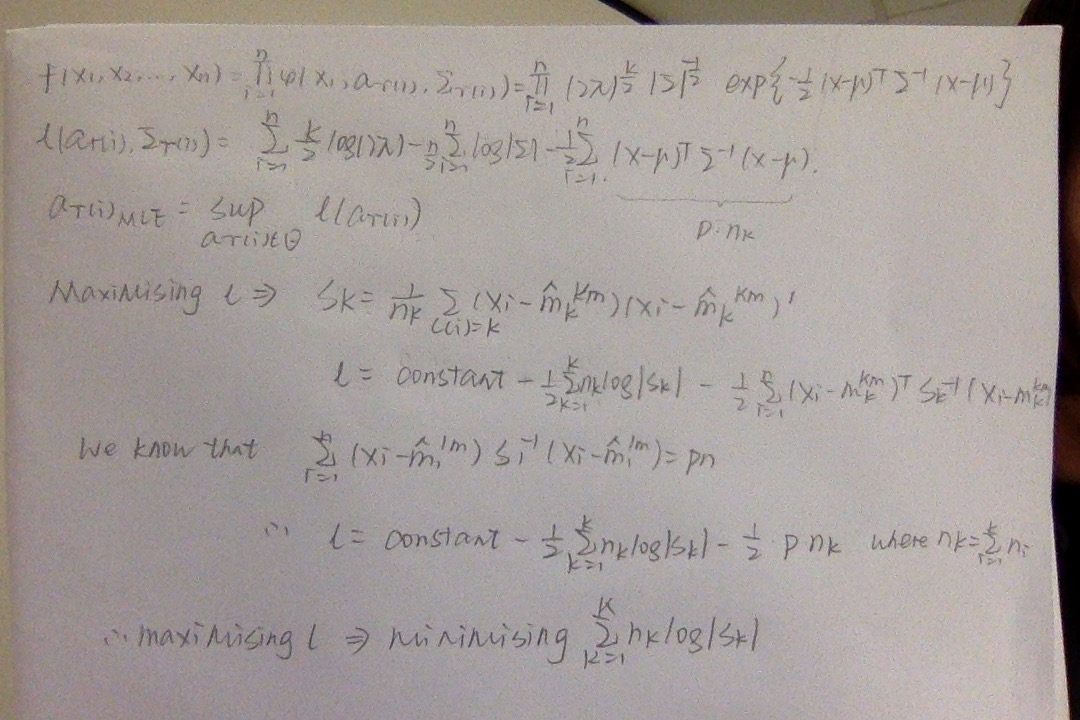 f(x₁, x₂, ..., xₙ) = ∏ᵢ₌₁ⁿ φ(xᵢ, a_r(i), Σ_r(i)) = ∏ᵢ₌₁ⁿ (2π)^(k/2) |Σ|^(-1/2) exp{-1/2 (x-μ)ᵀ Σ⁻¹ (x-μ)}
l(a_r(i), Σ_r(i)) = Σᵢ₌₁ⁿ k/2 log(2π) - n/2 Σᵢ₌₁ⁿ log|Σ| - 1/2 Σᵢ₌₁ⁿ (x-μ)ᵀ Σ⁻¹ (x-μ).
p·nₖ
a_r(i) MLE = sup_{a_r(i)∈Θ} l(a_r(i))
Maximising l ⇒ Sₖ = 1/nₖ Σ_{c(i)=k} (xᵢ - m̂ₖ^km)(xᵢ - m̂ₖ^km)'
l = constant - 1/2 Σₖ₌₁ᴷ nₖ log|Sₖ| - 1/2 Σᵢ₌₁ⁿ (xᵢ - mₖ^km)ᵀ Sₖ⁻¹ (xᵢ - mₖ^km)
We know that Σᵢ₌₁ⁿ (xᵢ - m̂₁^1m) S₁⁻¹ (xᵢ - m̂₁^1m) = pn
∴ l = constant - 1/2 Σₖ₌₁ᴷ nₖ log|Sₖ| - 1/2 · p nₖ where nₖ = Σᵢ₌₁ᵏ nᵢ
∴ maximising l ⇒ minimising Σₖ₌₁ᴷ nₖ log|Sₖ|